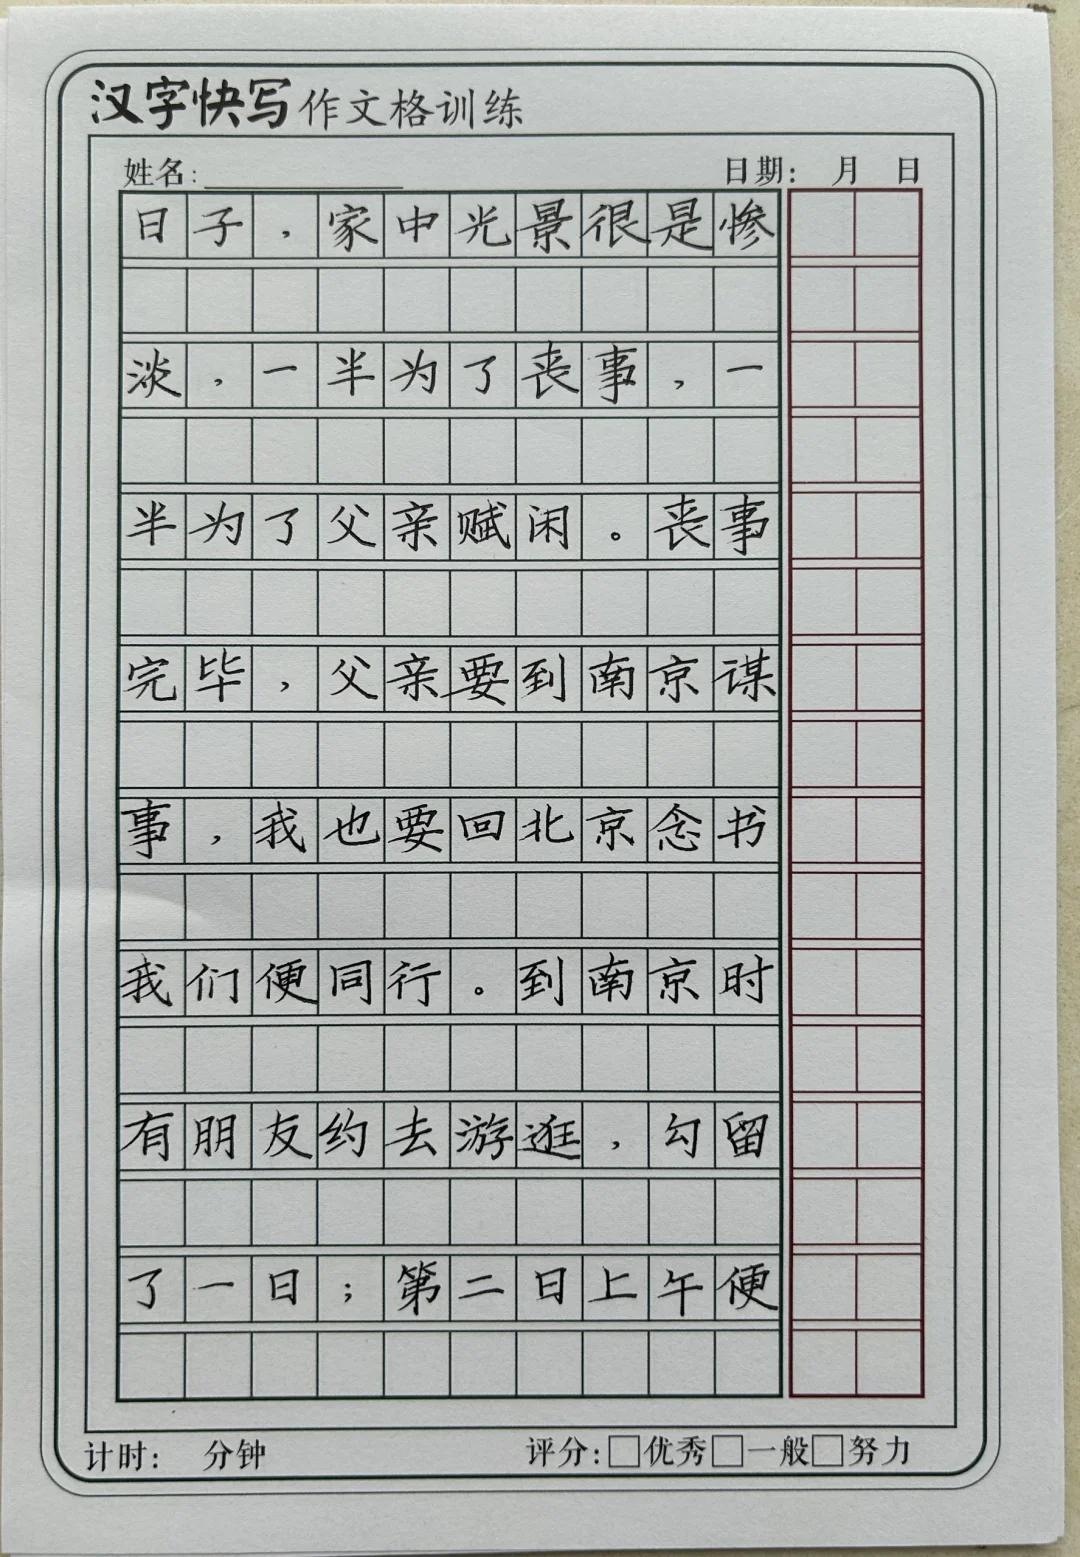 汉字快写作文格训练
姓名: 日期: 月 日
日子,家中光景很是惨
淡,一半为了丧事,一
半为了父亲赋闲。丧事
完毕,父亲要到南京谋
事,我也要回北京念书
我们便同行。到南京时
有朋友约去游逛,勾留
了一日;第二日上午便
计时: 分钟 评分:□优秀□一般□努力